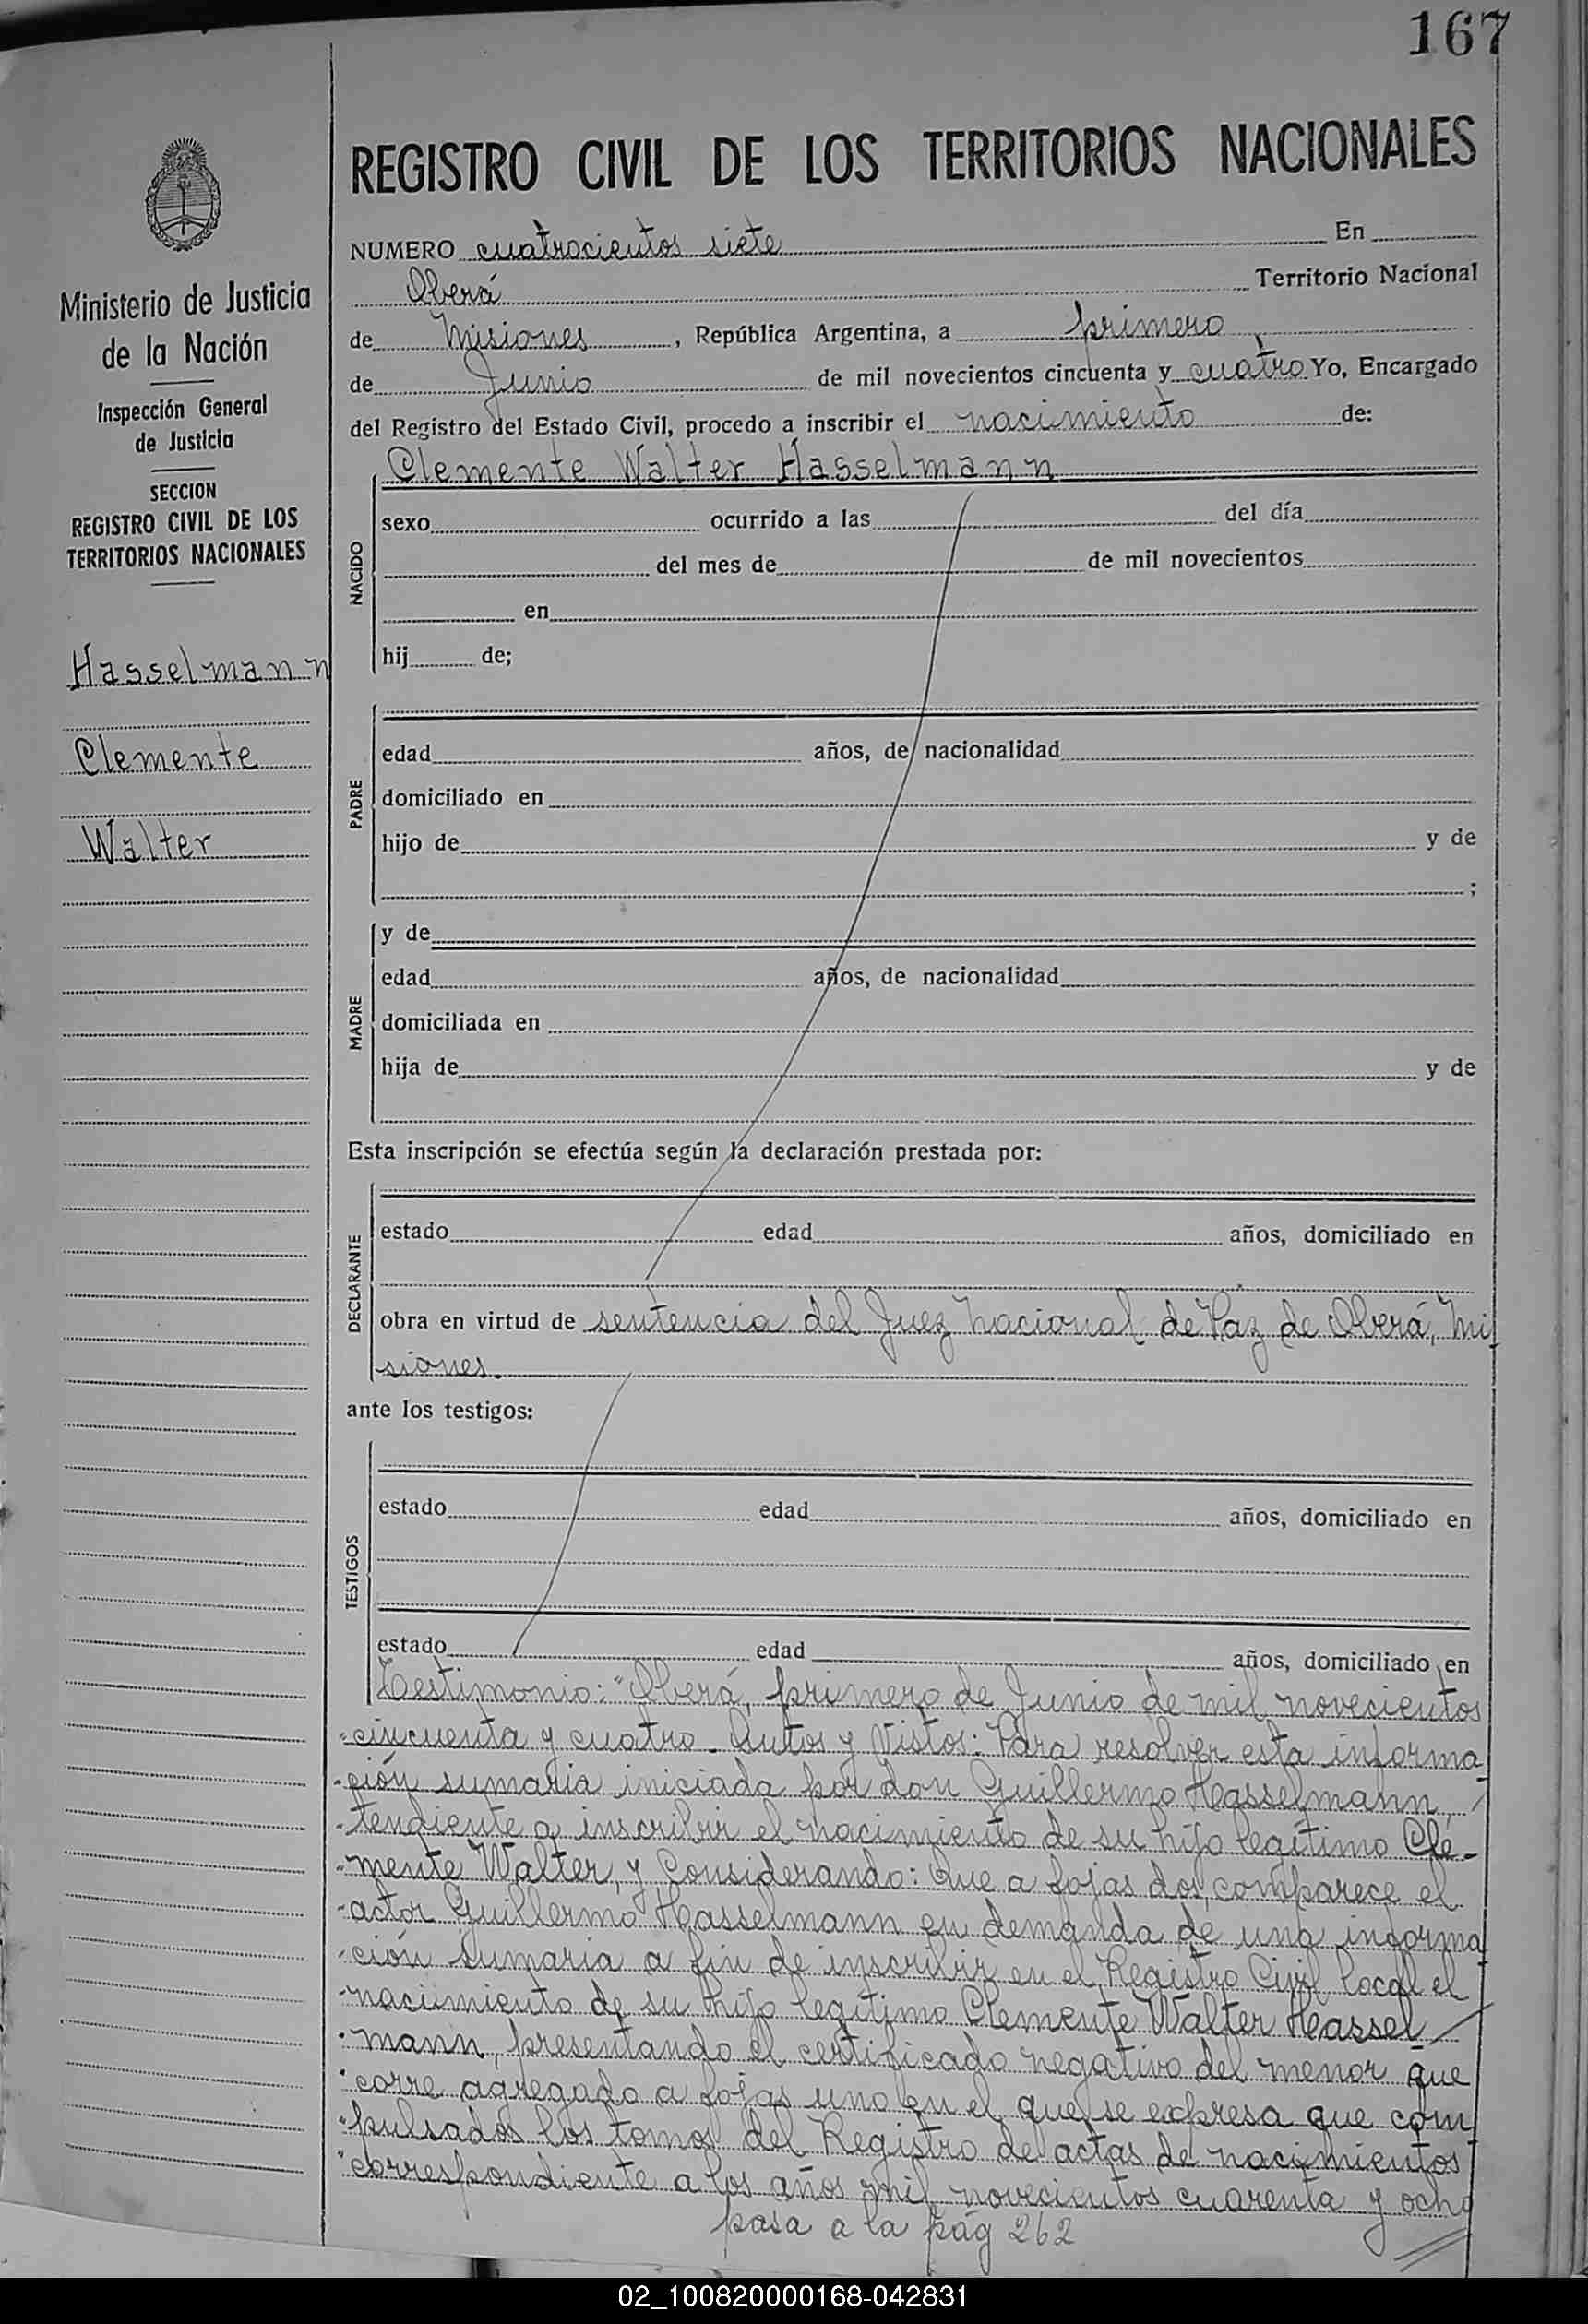 167
REGISTRO CIVIL DE LOS TERRITORIOS NACIONALES
NUMERO cuatrocientos siete En
Oberá Territorio Nacional
de Misiones, República Argentina, a primero
de Junio de mil novecientos cincuenta y cuatro Yo, Encargado
del Registro del Estado Civil, procedo a inscribir el nacimiento de:
Clemente Walter Hasselmann
NACIDO
sexo ocurrido a las del día
del mes de de mil novecientos
en
hij de;
PADRE
edad años, de nacionalidad
domiciliado en
hijo de y de
;
MADRE
y de
edad años, de nacionalidad
domiciliada en
hija de y de
Esta inscripción se efectúa según la declaración prestada por:
DECLARANTE
estado edad años, domiciliado en
obra en virtud de sentencia del Juez Nacional de Paz de Oberá, Mi
siones.
ante los testigos:
TESTIGOS
estado edad años, domiciliado en
estado edad años, domiciliado en
Testimonio: "Oberá, primero de Junio de mil novecientos
"cincuenta y cuatro. Autos y Vistos: Para resolver esta informa
"ción sumaria iniciada por don Guillermo Hasselmann,
"tendiente a inscribir el nacimiento de su hijo legítimo Cle-
"mente Walter, y Considerando: Que a fojas dos, comparece el
"actor Guillermo Hasselmann en demanda de una informa
"ción sumaria a fin de inscribir en el Registro Civil local el
"nacimiento de su hijo legítimo Clemente Walter Hassel
"mann, presentando el certificado negativo del menor que
"corre agregado a fojas uno en el que se expresa que com
"pulsados los tomos del Registro de actas de nacimientos
"correspondiente a los años mil novecientos cuarenta y ocho
pasa a la pág 262
Ministerio de Justicia
de la Nación
Inspección General
de Justicia
SECCION
REGISTRO CIVIL DE LOS
TERRITORIOS NACIONALES
Hasselmann
Clemente
Walter
02_100820000168-042831